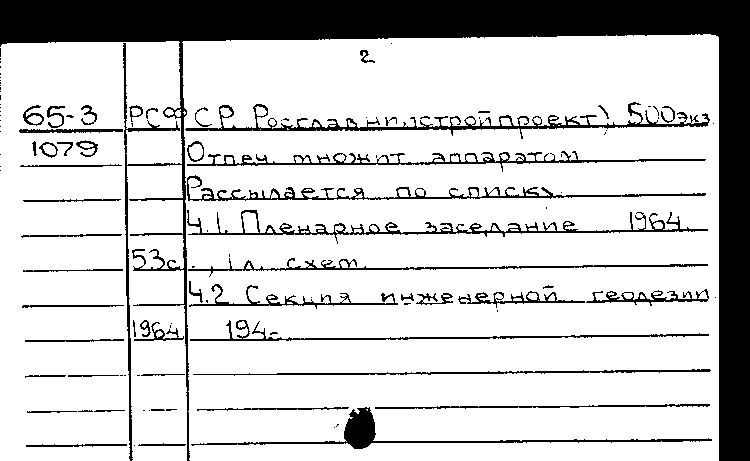 2
65-3 РСФСР. Росглавниистройпроект) 500экз
1079 Отпеч. множит. аппаратом
Рассылается по списку.
Ч.1. Пленарное заседание 1964.
53с., 1 л. схем.
Ч.2 Секция инженерной геодезии
1964 194с